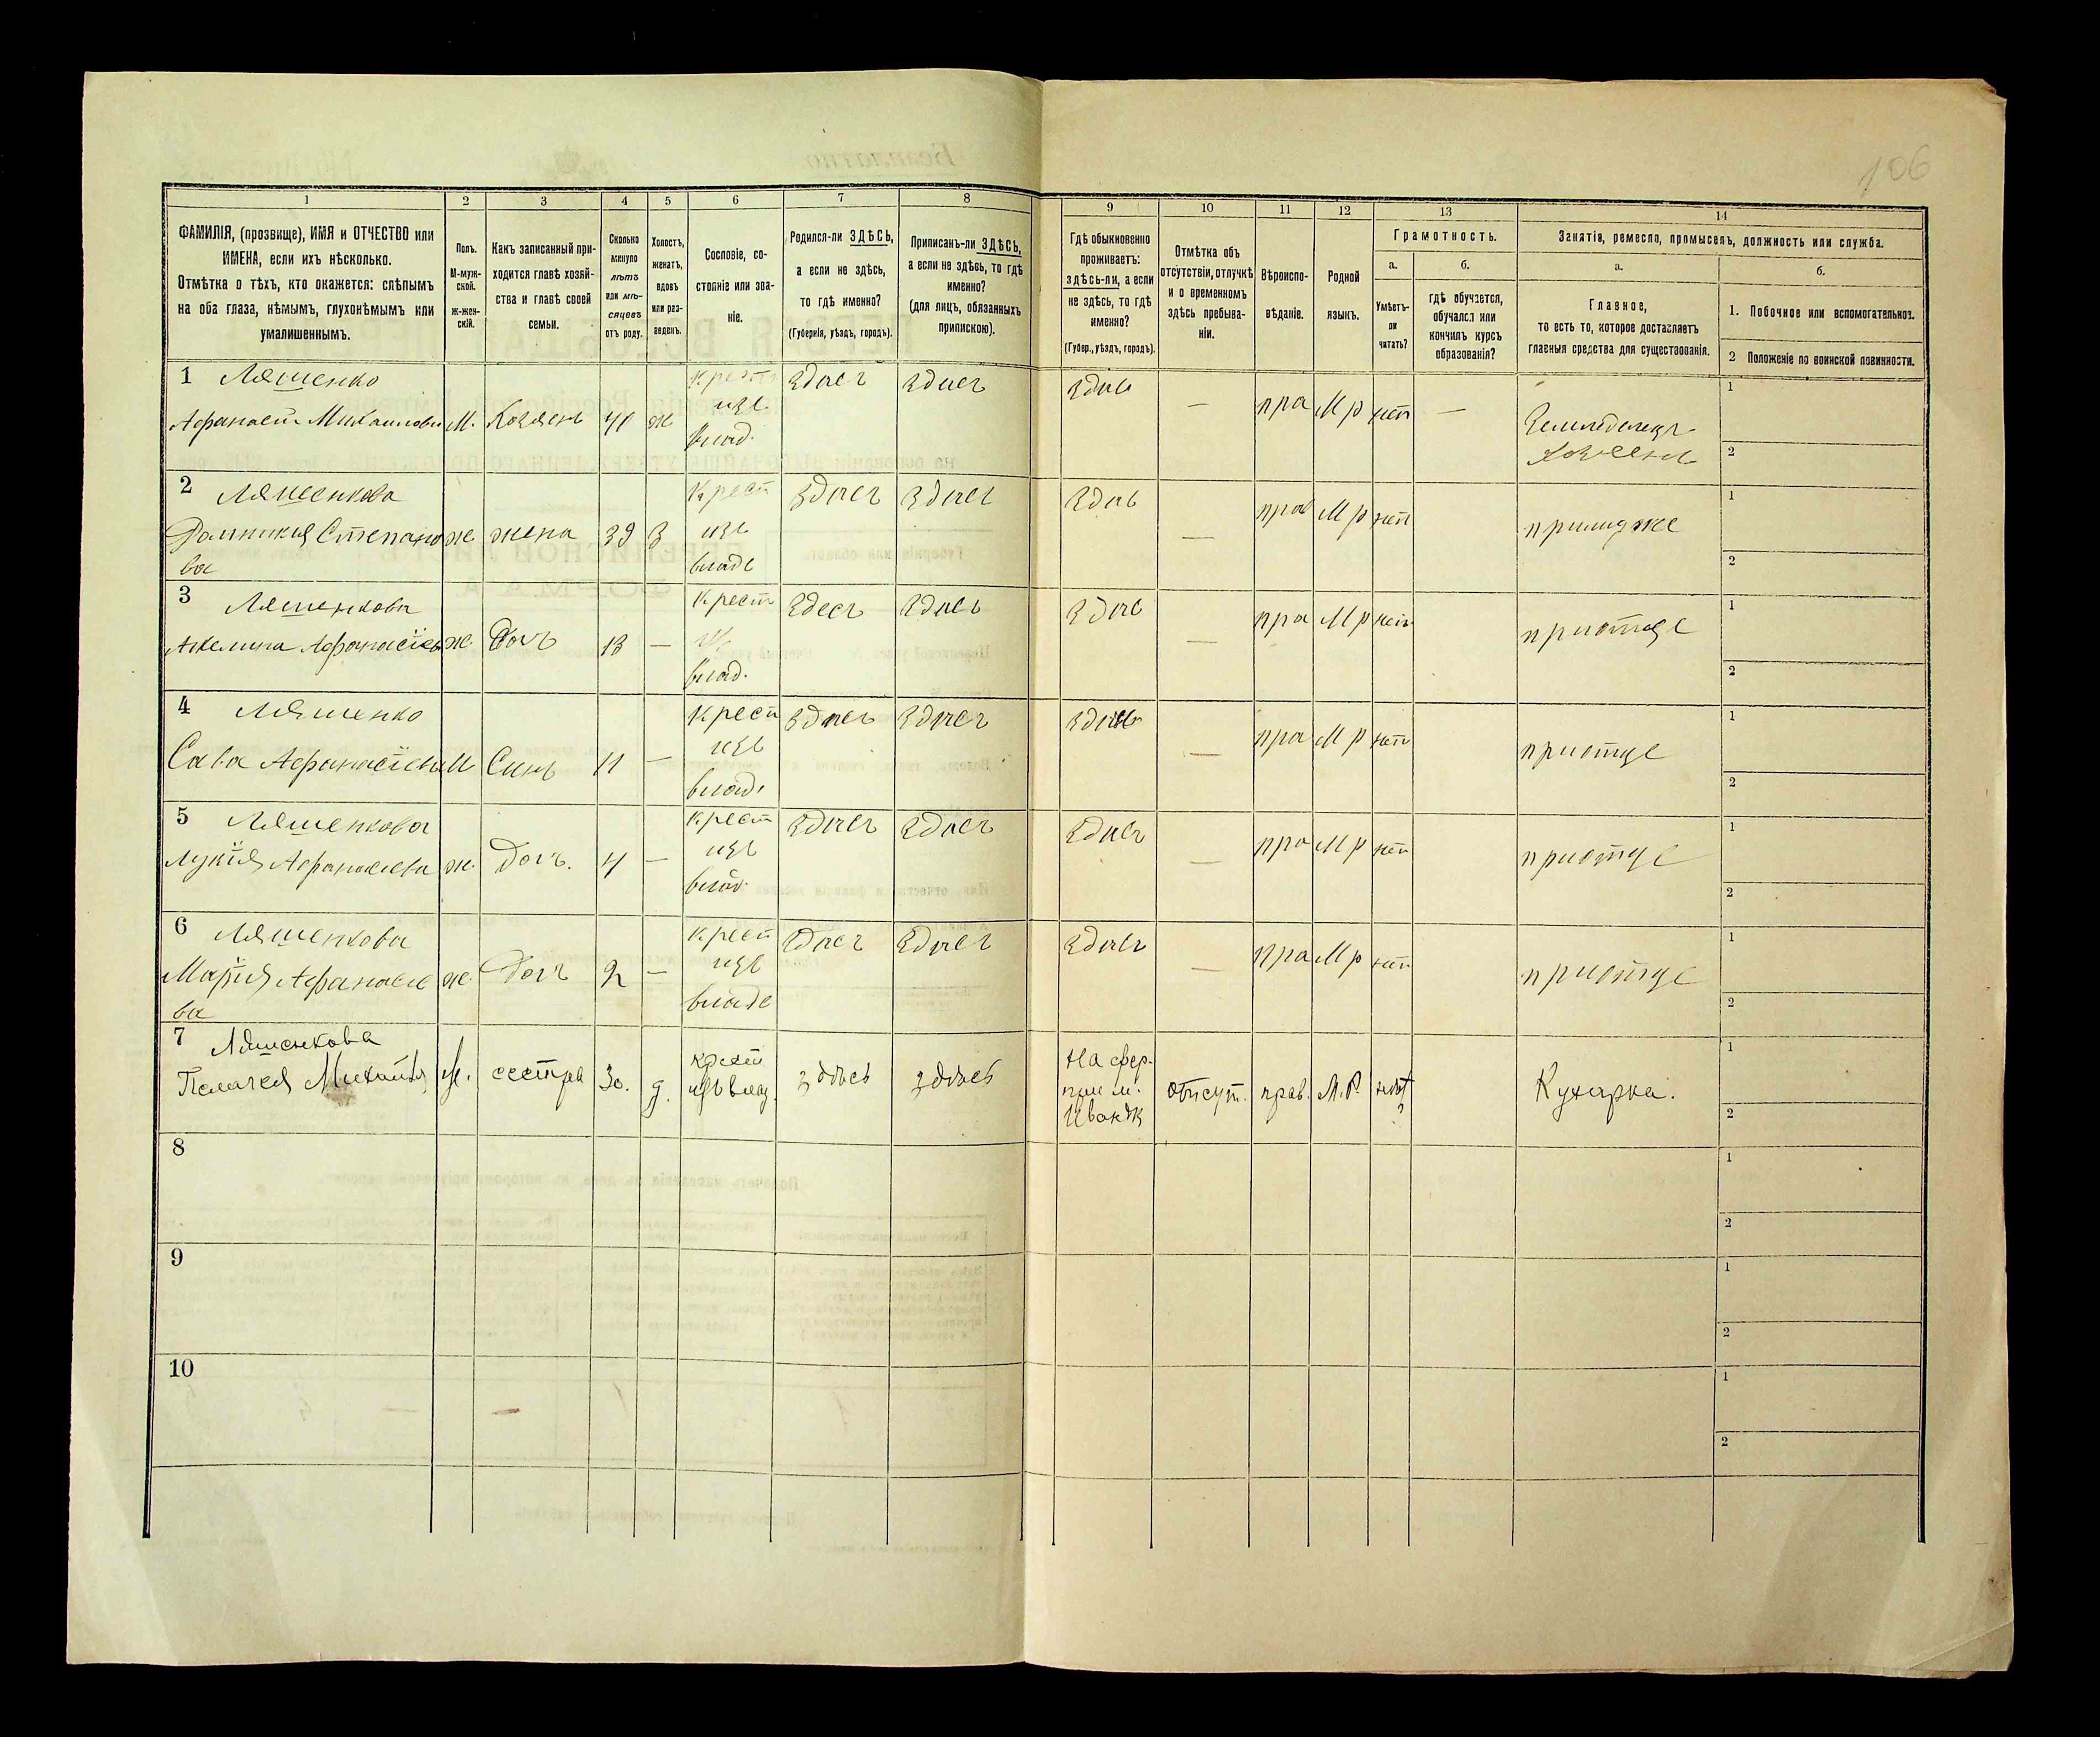 106
1 2 3 4 5 6 7 8 9 10 11 12 13 14
ФАМИЛІЯ, (прозвище), ИМЯ и ОТЧЕСТВО или
ИМЕНА, если ихъ нѣсколько.
Отмѣтка о тѣхъ, кто окажется: слѣпымъ
на оба глаза, нѣмымъ, глухонѣмымъ или
умалишеннымъ.
Полъ.
М-муж-
ской.
ж-жен-
скій.
Какъ записанный при-
ходится главѣ хозяй-
ства и главѣ своей
семьи.
Сколько
минуло
лѣтъ
или мѣ-
сяцевъ
отъ роду.
Холостъ,
женатъ,
вдовъ
или раз-
веденъ.
Сословіе, со-
стояніе или зва-
ніе.
Родился-ли ЗДѢСЬ,
а если не здѣсь,
то гдѣ именно?
(Губернія, уѣздъ, городъ).
Приписанъ-ли ЗДѢСЬ,
а если не здѣсь, то гдѣ
именно?
(для лицъ, обязанныхъ
припискою).
Гдѣ обыкновенно
проживаетъ:
здѣсь-ли, а если
не здѣсь, то гдѣ
именно?
(Губер., уѣздъ, городъ).
Отмѣтка объ
отсутствіи, отлучкѣ
и о временномъ
здѣсь пребыва-
ніи.
Вѣроиспо-
вѣданіе.
Родной
языкъ.
Грамотность.
а.
Умѣетъ-
ли
читать?
б.
гдѣ обучается,
обучался или
кончилъ курсъ
образованія?
Занятіе, ремесло, промыселъ, должность или служба.
а.
Главное,
то есть то, которое доставляетъ
главныя средства для существованія.
б.
1. Побочное или вспомогательное.
2 Положеніе по воинской повинности.
1 Ляшенко
Афанасий Михаилови М. Хозяен ж
крест
изъ
влад.
ЗдиСъ Здисъ Здис — пра М р нет —
Земледелец
хозяен
1
2
2 Ляшенкова
Домникия Степано
ва
ж жена 39 З
Крест
изъ
владе
Здисъ Здисъ Здис — пра М р нет примуже
1
2
3 Ляшенкова
Акелина Афанасіев ж. Доч 13 —
крест
из
влад.
Здесъ Здисъ Здис — пра М р нет приотце
1
2
4 Ляшенко
Сава Афанасіеви М Синъ 11 —
Крест
изъ
влад.
Здисъ Здисъ Здис — пра М р нет приотце
1
2
5 Ляшенкова
Лукія Афанасиева ж. Доч. 4 —
крест
изъ
влад.
Здисъ Здисъ Здисъ — пра М р нет приотце
1
2
6 Ляшенкова
Марія Афанасие
ва
ж. Доч 2 —
крест
изъ
владе
Здисъ Здисъ Здисъ — пра М р нет приотце
1
2
7 Ляшенкова
Пелагея Михайл ж. сестра 30. д.
крест
изъ влад.
здѣсь здѣсь
На фер-
отсут. прав. М.Р. нѣт
?
Кухарка.
1
2
8
1
2
9
1
2
10
1
2